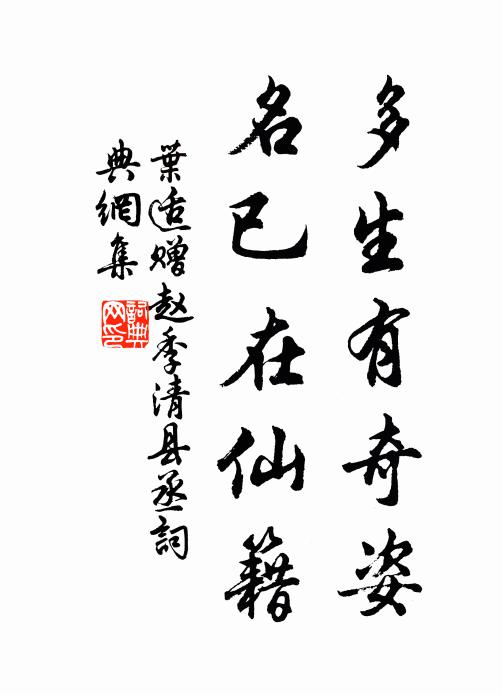 多生有奇姿
名已在仙籍
葉适赠赵季清县丞詞
典網集
詞典网印